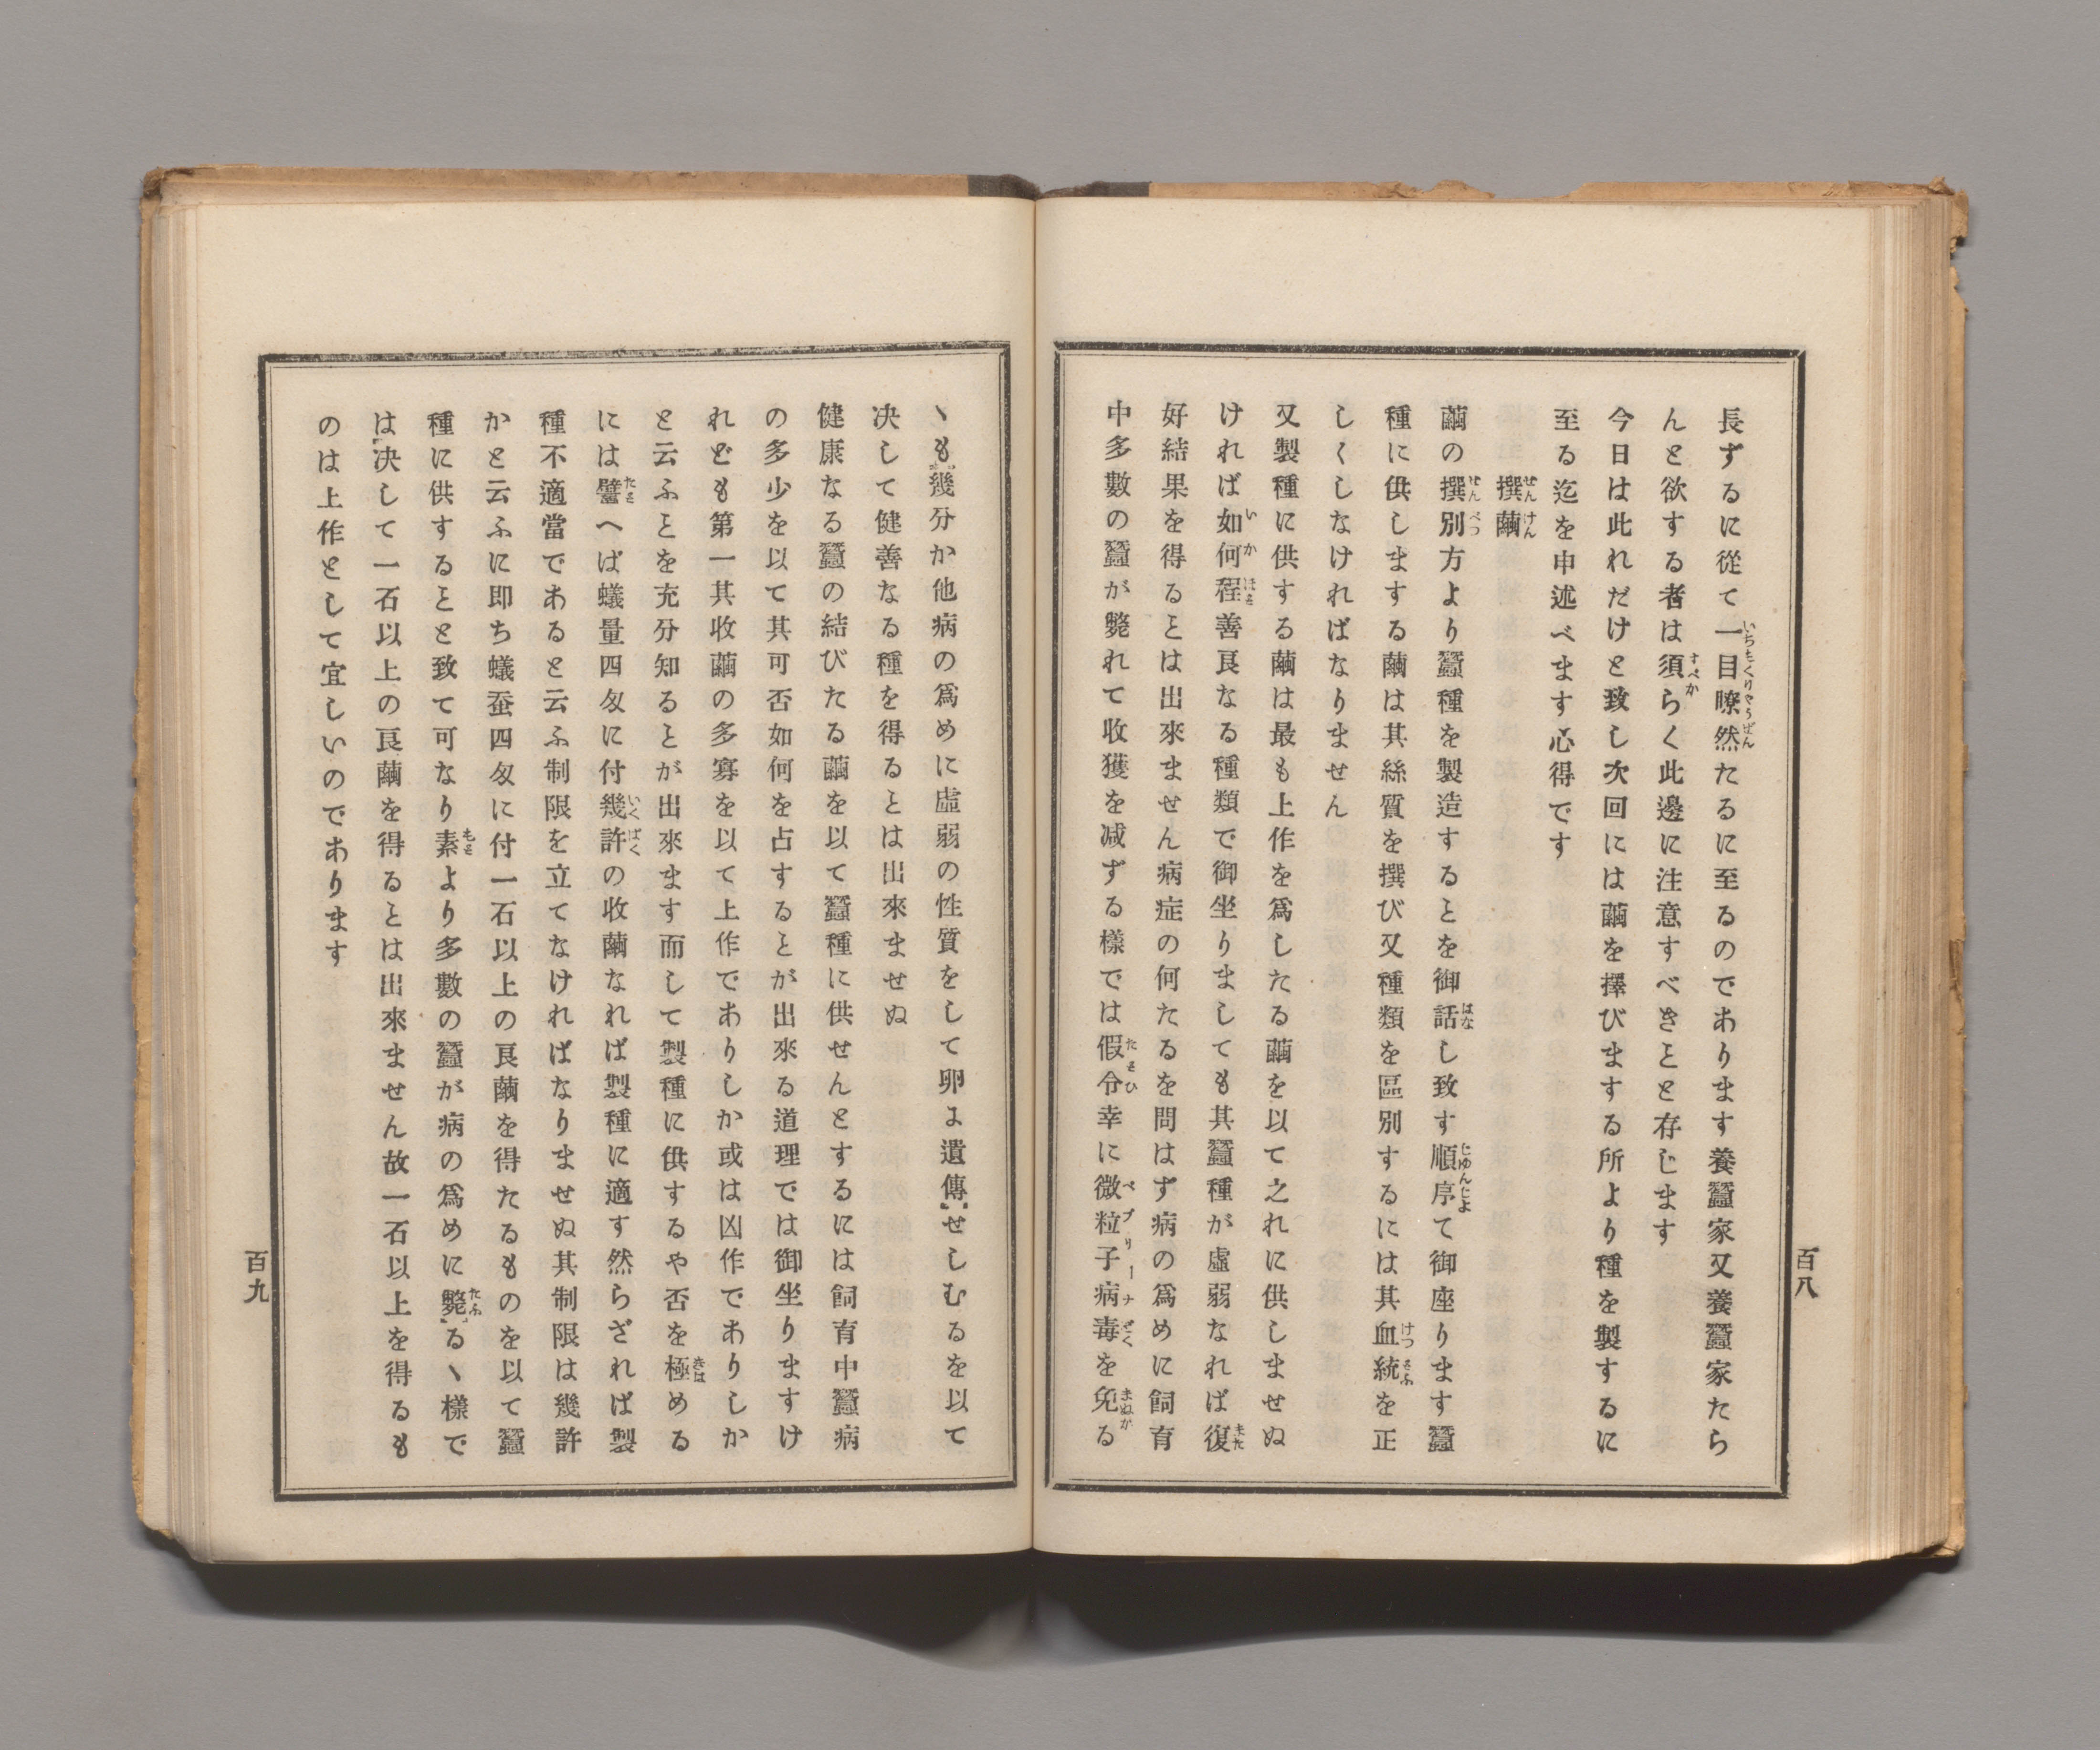 長ずるに從て一目瞭然たるに至るのであります養蠶家又養蠶家たら
んと欲する者は須らく此邊に注意すべきことと存じます
今日は此れだけと致し次回には繭を擇びまする所より種を製するに
至る迄を申述べます心得です
撰繭
繭の撰別方より蠶種を製造することを御話し致す順序て御座ります蠶
種に供しまする繭は其絲質を撰び又種類を區別するには其血統を正
しくしなければなりません
又製種に供する繭は最も上作を爲したる繭を以て之れに供しませぬ
ければ如何程善良なる種類で御坐りましても其蠶種が虛弱なれば復
好結果を得ることは出來ません病症の何たるを問はず病の爲めに飼育
中多數の蠶が斃れて收獲を减ずる樣では假令幸に微粒子病毒を免る
百八
ヽも幾分か他病の爲めに虛弱の性質をして卵よ遺傳せしむるを以て
决して健善なる種を得ることは出來ませぬ
健康なる蠶の結びたる繭を以て蠶種に供せんとするには飼育中蠶病
の多少を以て其可否如何を占することが出來る道理では御坐りますけ
れども第一其收繭の多寡を以て上作でありしか或は凶作でありしか
と云ふことを充分知ることが出來ます而して製種に供するや否を極める
には譬へば蟻量四匁に付幾許の收繭なれば製種に適す然らざれば製
種不適當であると云ふ制限を立てなければなりませぬ其制限は幾許
かと云ふに即ち蟻蚕四匁に付一石以上の良繭を得たるものを以て蠶
種に供することと致て可なり素より多數の蠶が病の爲めに斃るヽ樣で
は决して一石以上の良繭を得ることは出來ません故一石以上を得るも
のは上作として宜しいのであります
百九